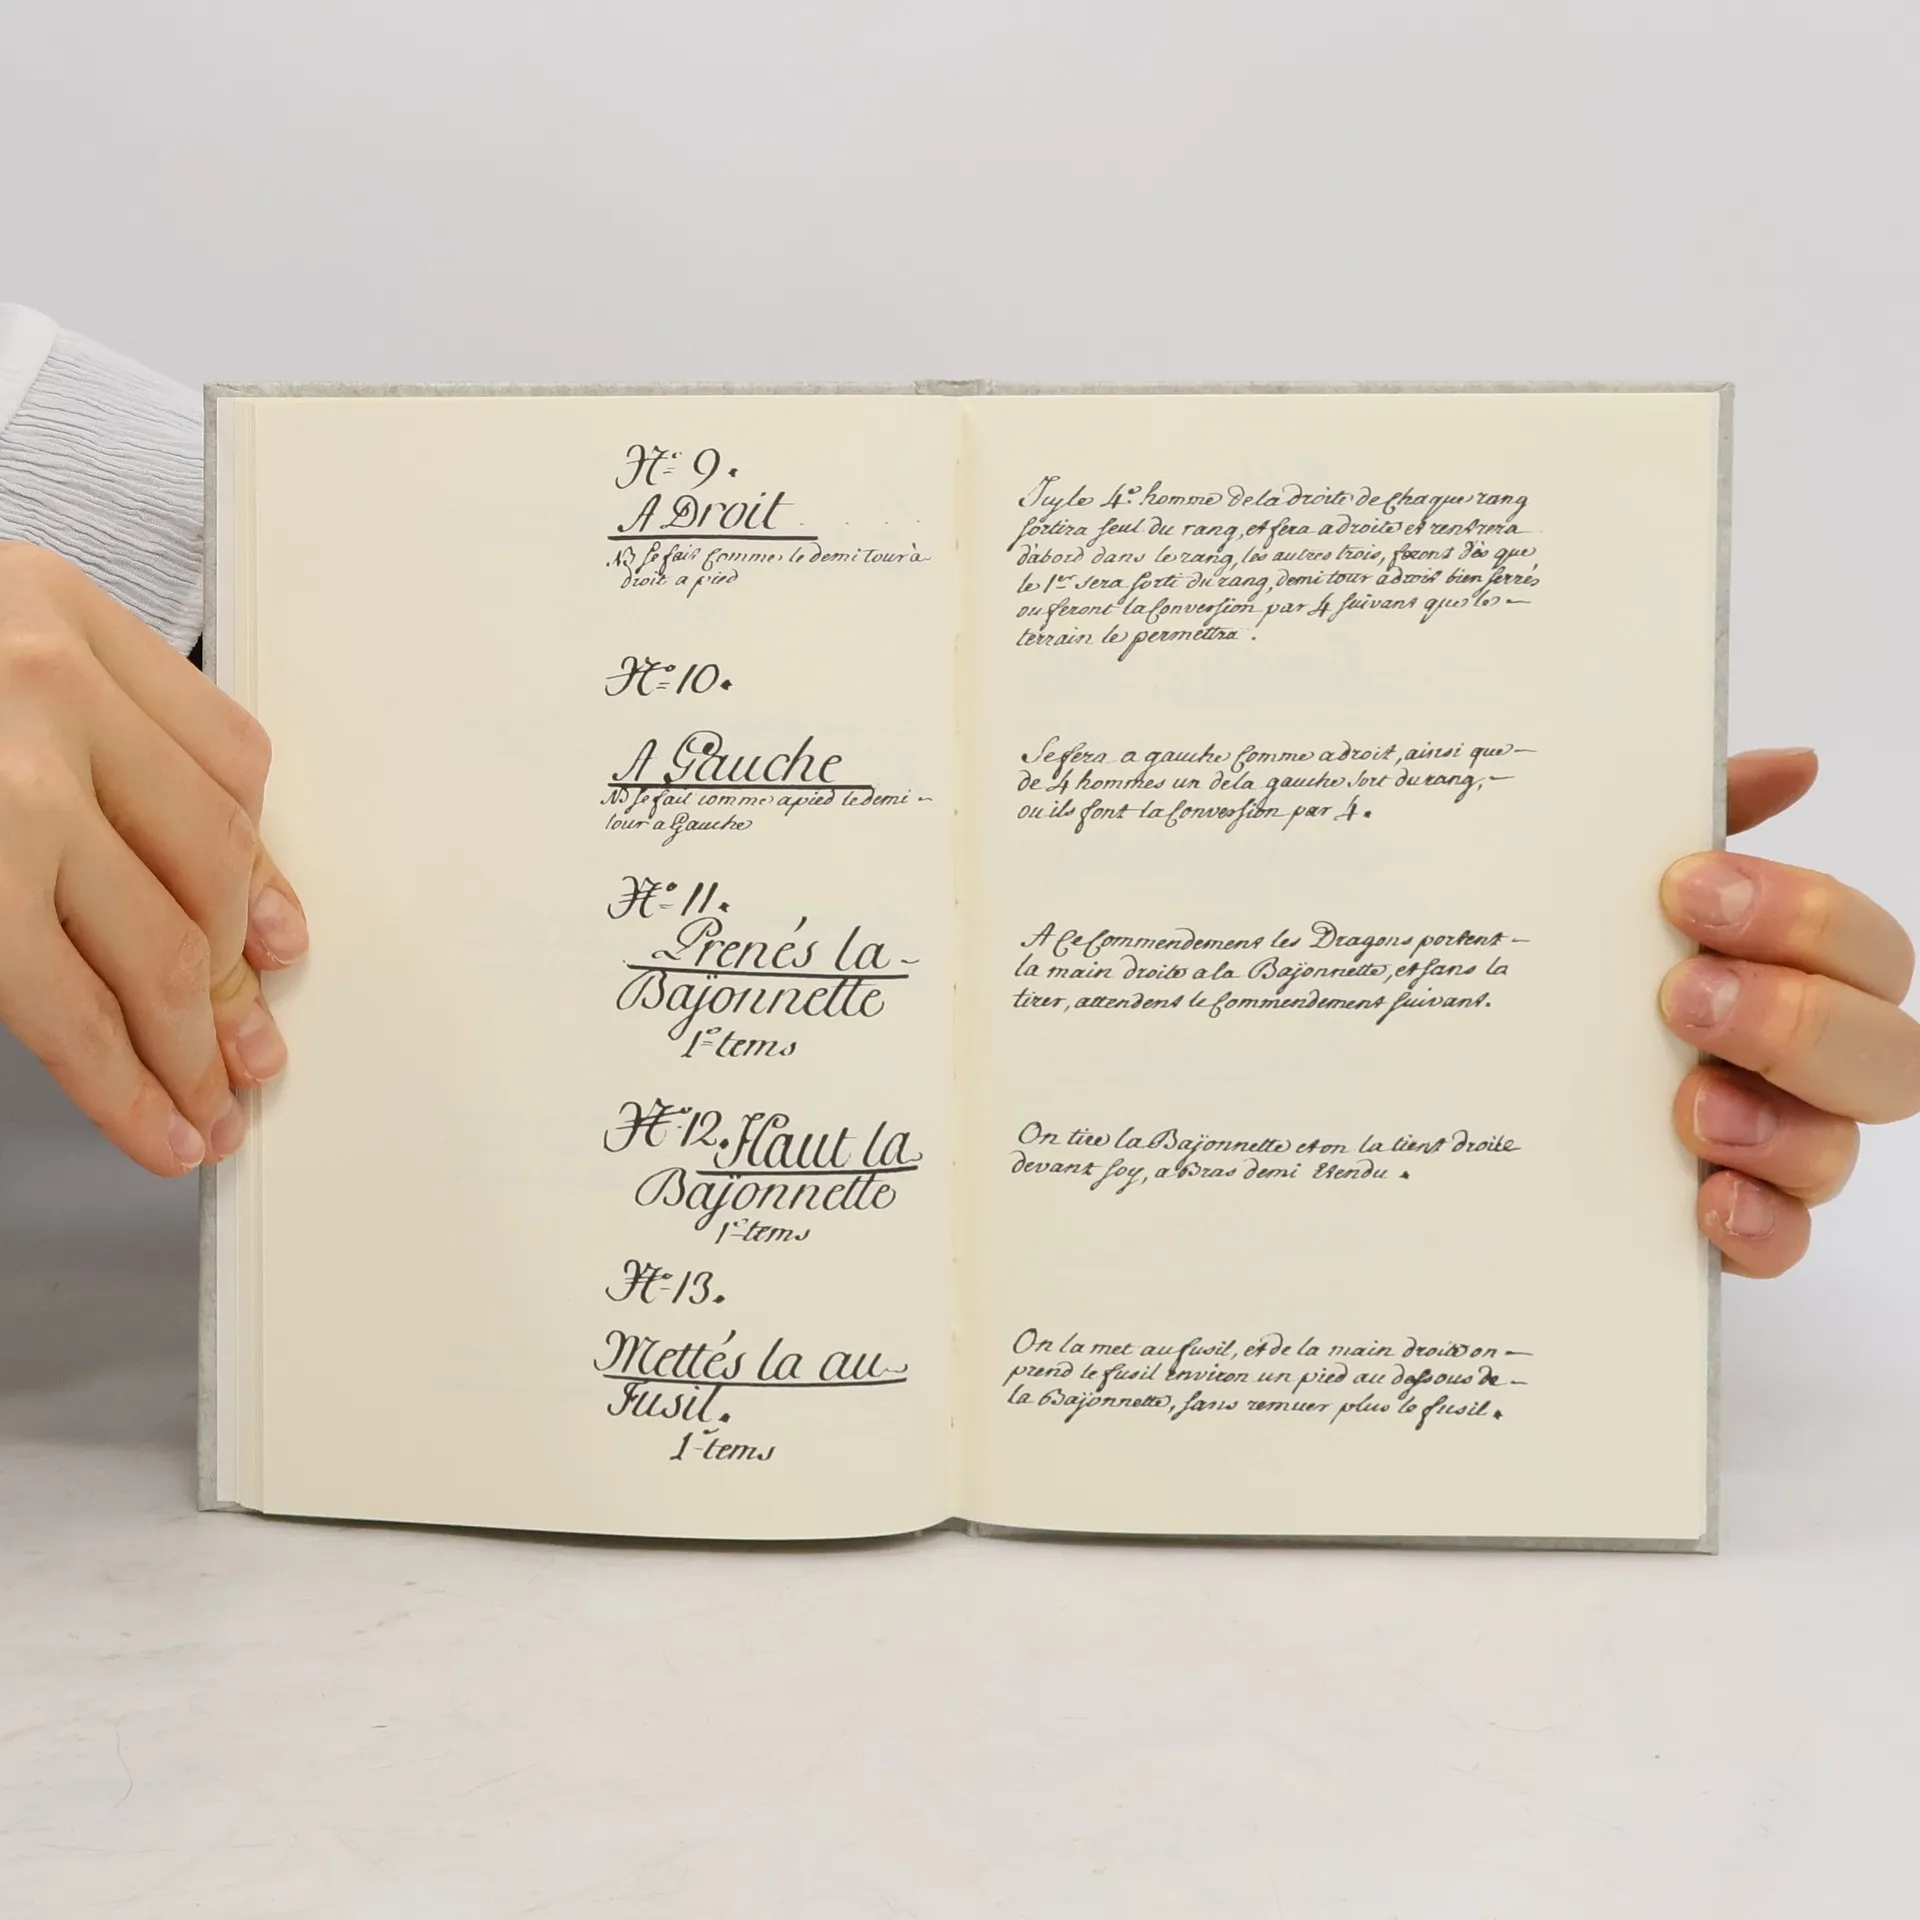 N.° 9.
A Droit
NB se fait Comme le demi tour a
droit a pied
N.° 10.
A Gauche
NB se fait comme a pied le demi -
tour a Gauche
N.° 11.
Prenés la -
Bajonnette
1.° tems
N.° 12. Haut la
Bajonnette
1.° tems
N.° 13.
Mettés la au -
Fusil.
1.° tems
Icy le 4.° homme de la droite de Chaque rang
sortira seul du rang, et fera a droite et rentrera
d'abord dans le rang, les autres trois, feront dès que
le 1.er sera sorti du rang, demi tour a droit bien serrés
ou feront la Conversion par 4 suivant que le -
terrain le permettra.
Se fera a gauche Comme a droit, ainsi que -
de 4 hommes un de la gauche sort du rang, -
ou ils font la Conversion par 4.
A Ce Commendement les Dragons portent -
la main droite a la Bajonnette, et sans la
tirer, attendent le Commendement suivant.
On tire la Bajonnette et on la tient droite
devant soy, a Bras demi Etendu.
On la met au fusil, et de la main droite on -
prend le fusil environ un pied au dessous de -
la Bajonnette, sans remuer plus le fusil.